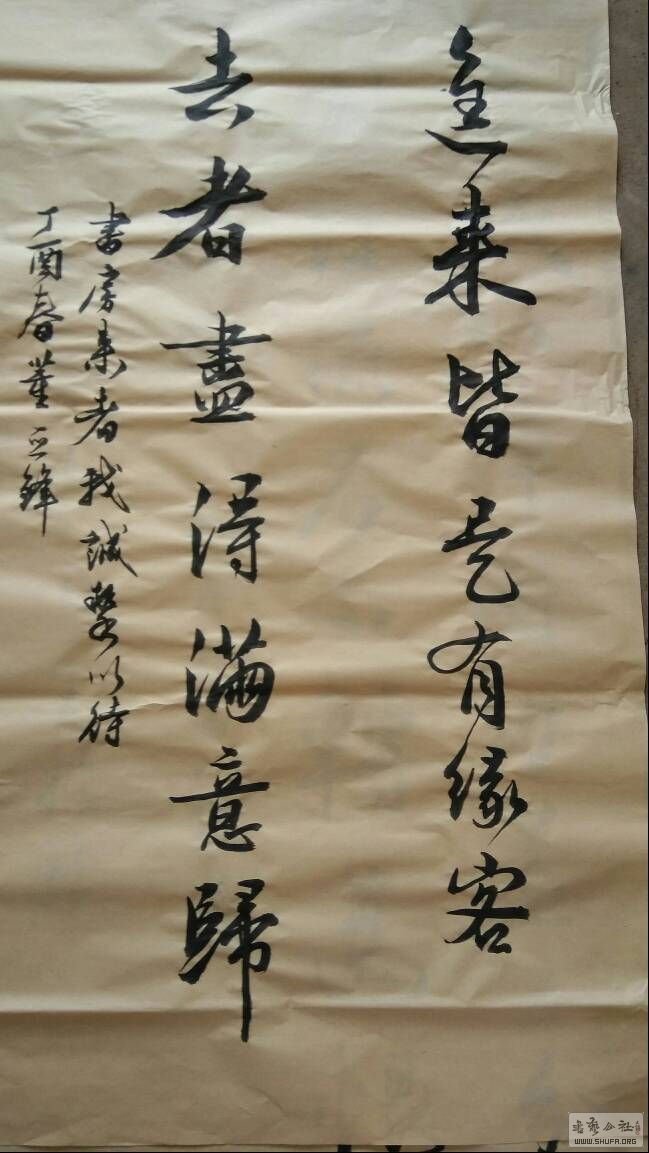 進来皆是有緣客
去者盡得滿意歸
書房来者我誠摯以待
丁酉春董鋒
書藝公社
WWW.SHUFA.ORG